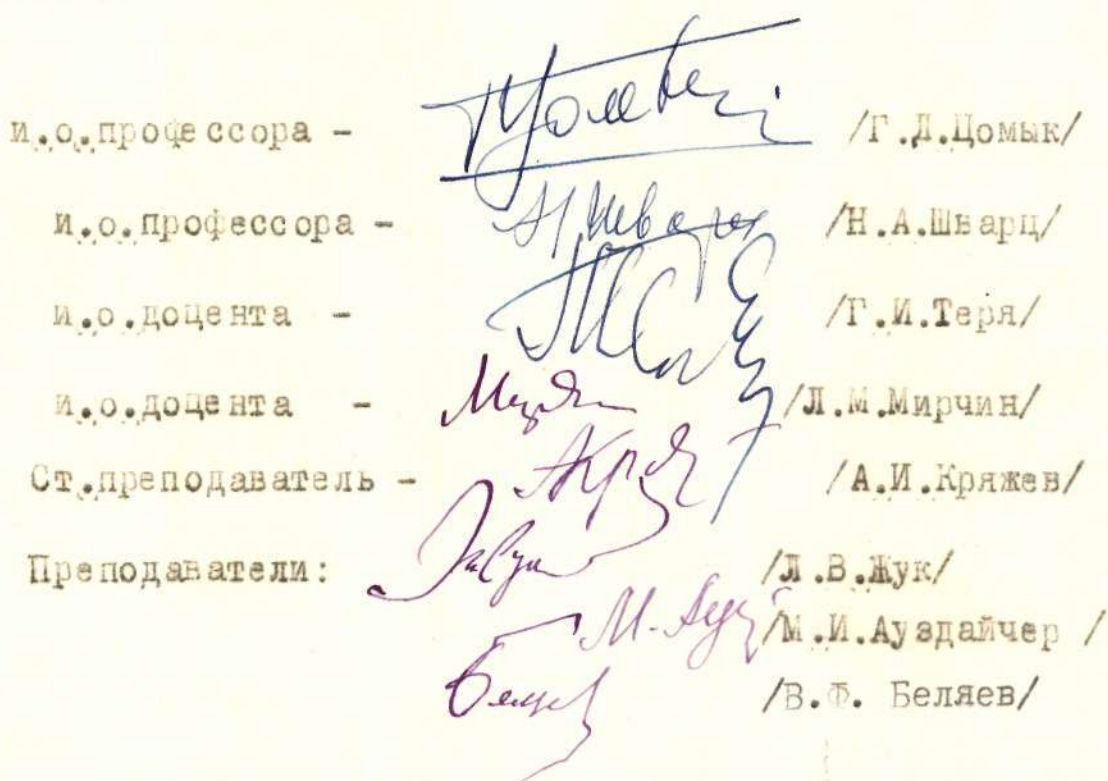 и.о.профессора - /Г.Д.Цомык/
и.о.профессора - /Н.А.Шварц/
и.о.доцента - /Г.И.Теря/
и.о.доцента - /Л.М.Мирчин/
Ст.преподаватель - /А.И.Кряжев/
Преподаватели: /Л.В.Жук/
/М.И.Ауздайчер /
/В.Ф. Беляев/